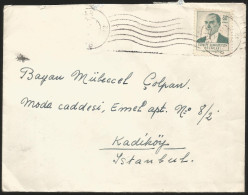 Bayan Mübeccel Çolpan.
Moda caddesi, Emel apt. No 8/2
Kadıköy
İstanbul.